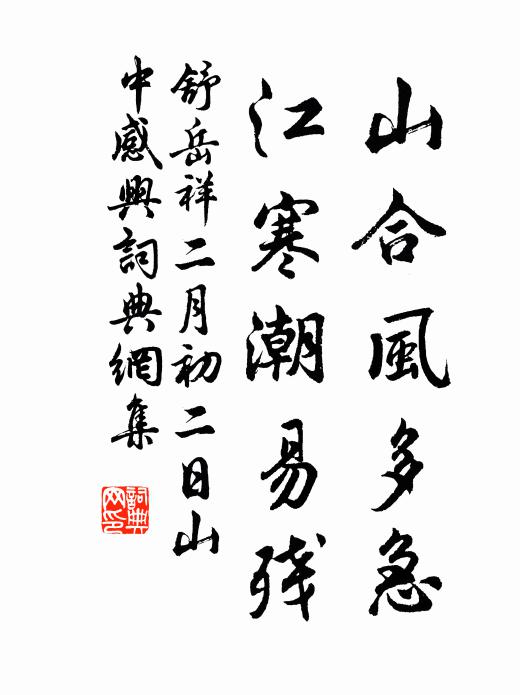 山合風多急
江寒潮易残
舒岳祥二月初二日山
中感興詞典網集
詞典网印